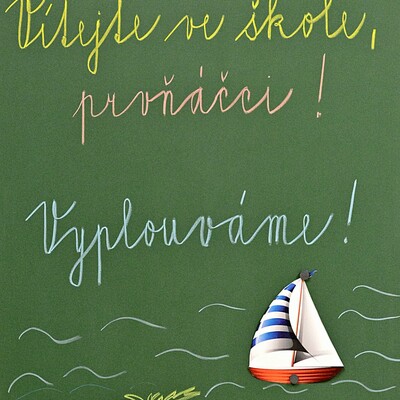 Vítejte ve škole,
prvňáčci!
Vyplouváme!